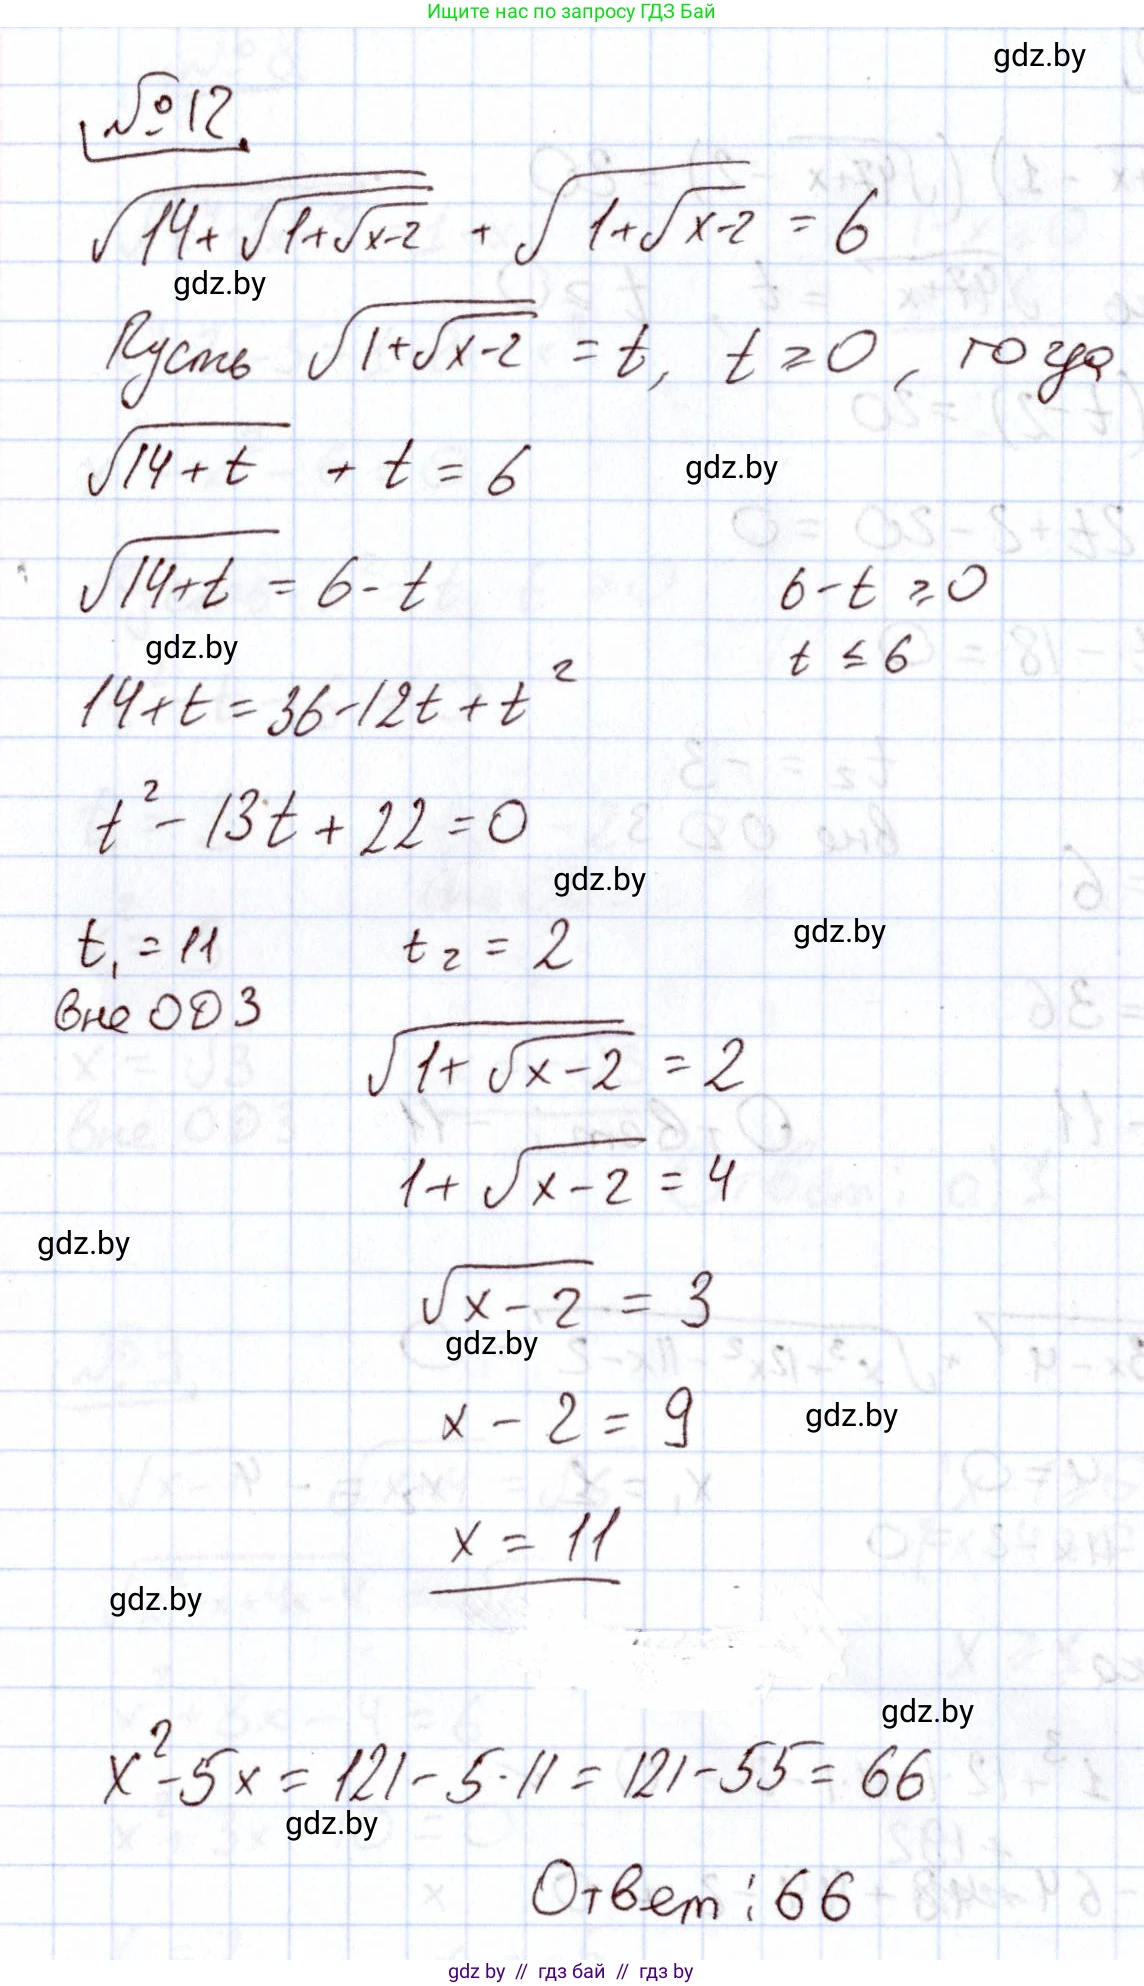 Ищите нас по запросу ГДЗ Бай
gdz.by
№12
√(14+√(1+√(x-2))) + √(1+√(x-2)) = 6
gdz.by
Пусть √(1+√(x-2)) = t, t ≥ 0, тогда
√(14+t) + t = 6
gdz.by
√(14+t) = 6-t 6-t ≥ 0
gdz.by t ≤ 6
14+t = 36-12t+t²
t² - 13t + 22 = 0
gdz.by
t₁ = 11 t₂ = 2
gdz.by
вне ОДЗ
√(1+√(x-2)) = 2
1+√(x-2) = 4
gdz.by
√(x-2) = 3
gdz.by
x - 2 = 9
gdz.by
x = 11
gdz.by
gdz.by
x²-5x = 121-5·11 = 121-55 = 66
gdz.by
Ответ: 66
gdz by // гдз бай // гдз by